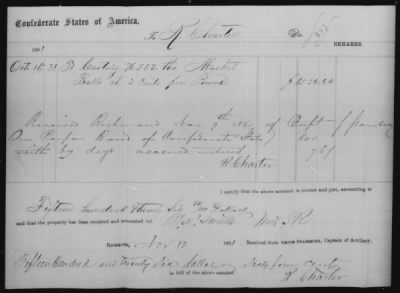 Confederate States of America,
To R Charter Dr.
186 REMARKS.
Oct 1 to 31 To Casting 76,332 lbs Musket
Balls at 2 Cents per Pound $1526.64
Received Richmond Nov 9th 1861 of
One Coupon Bond of Confederate States
with days accrued interest
R Charter
I certify that the above account is correct and just, amounting to
Fifteen hundred Twenty Six 64/100 Dollars
and that the property has been received and accounted for.
RICHMOND, Nov 12 1861 Received from SMITH STANSBURY, Captain of Artillery,
Fifteen Hundred and Twenty Six dollars Sixty four cents
in full of the above account.
R Charter